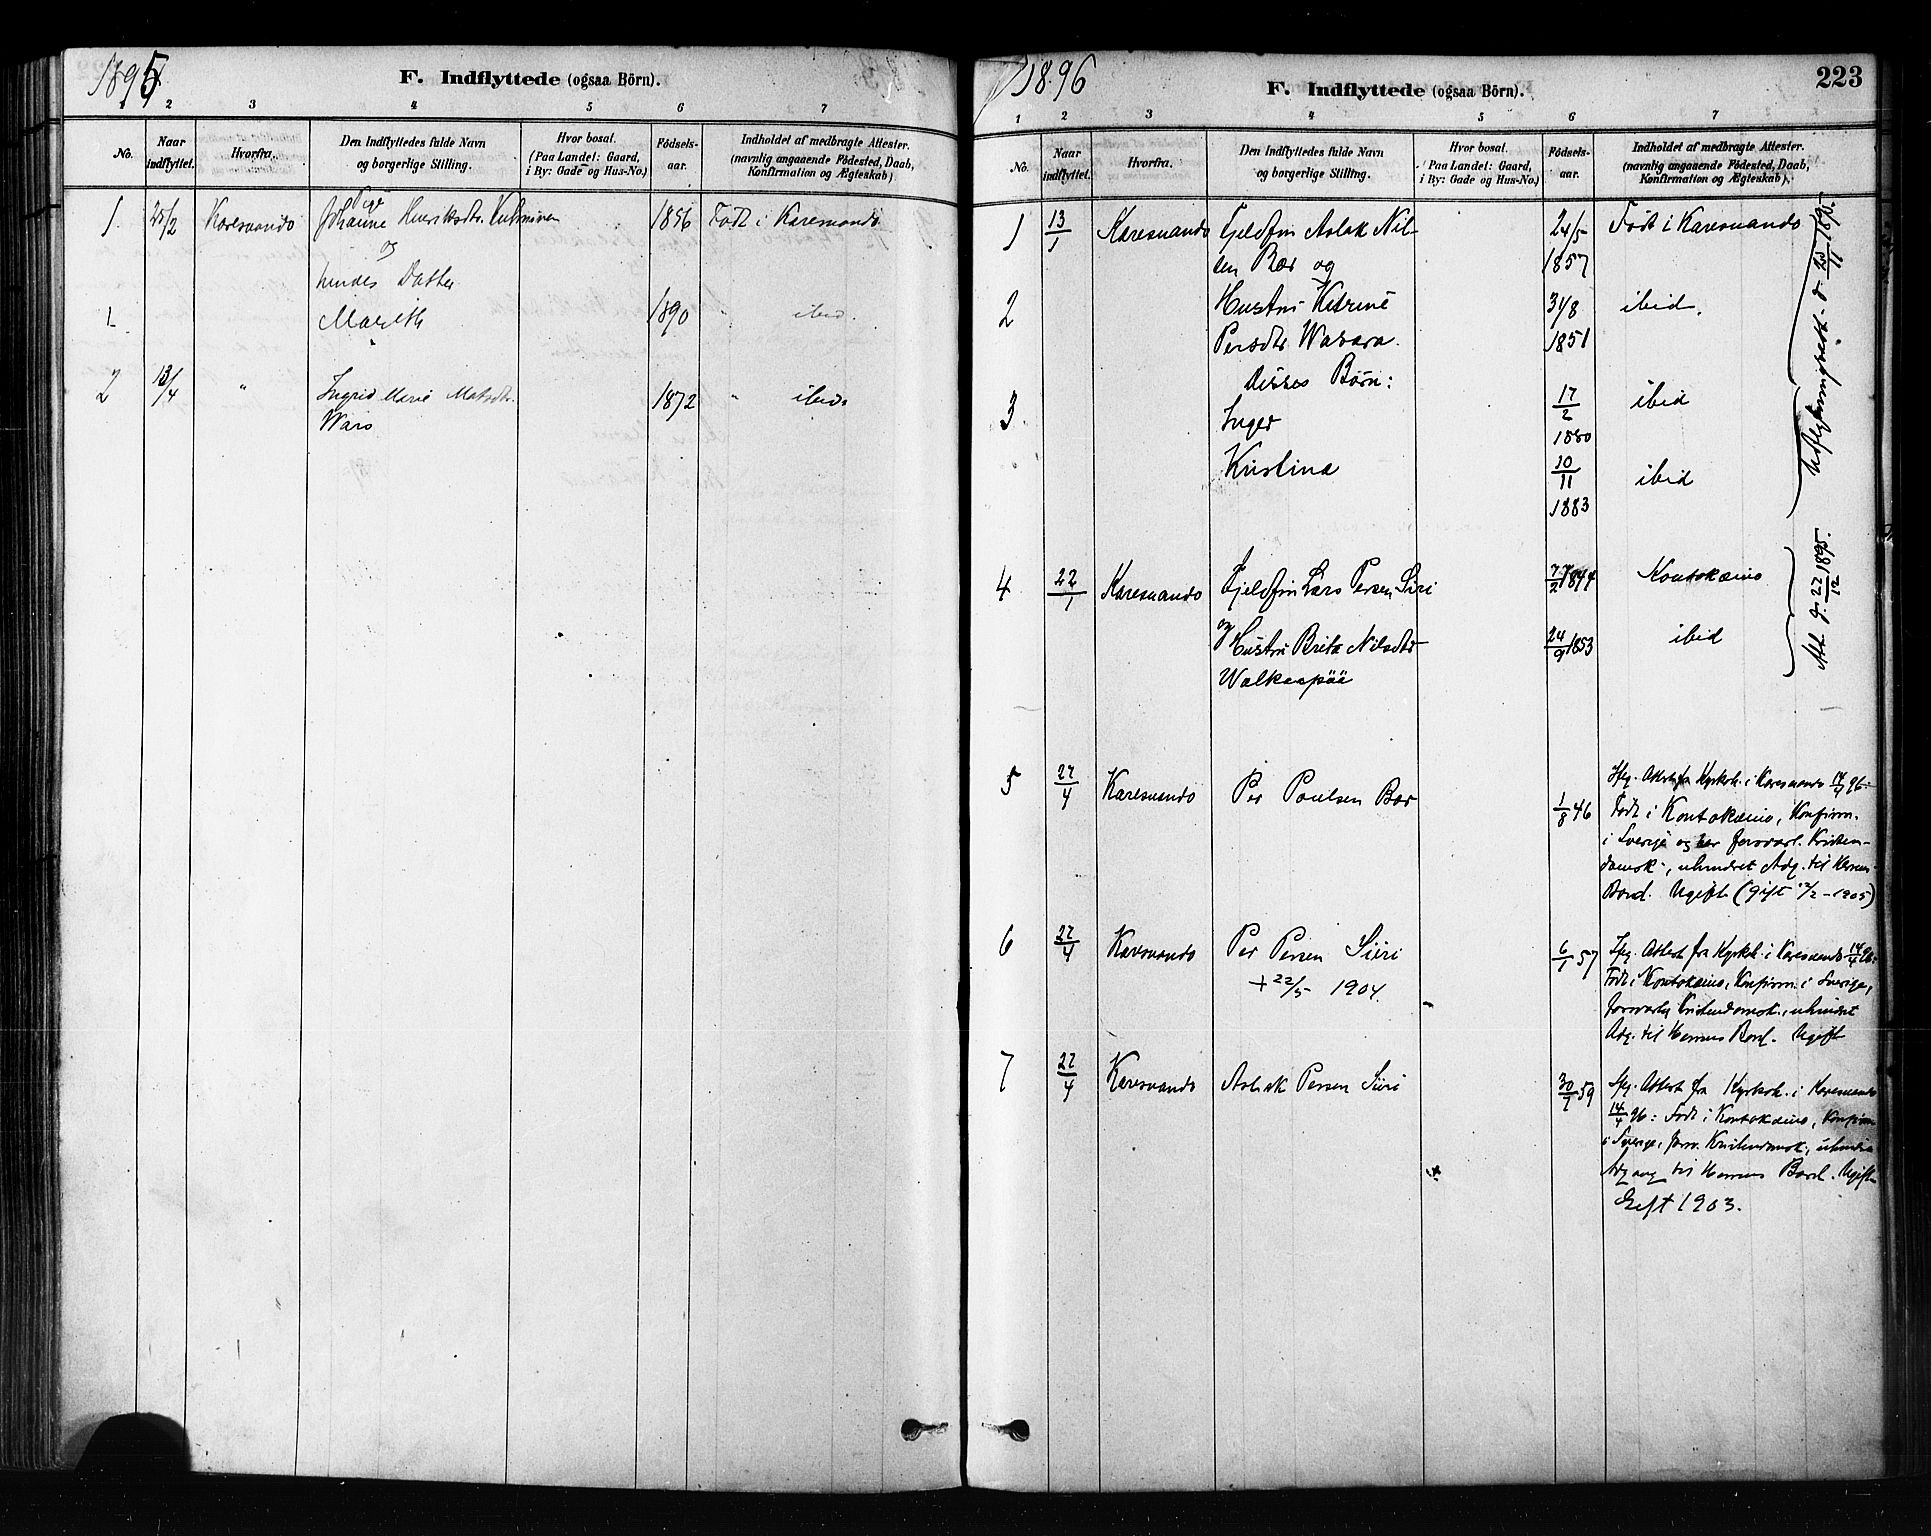 1895
F. Indflyttede (ogsaa Börn).
2 3 4 5 6 7
No.
Naar indflyttet.
Hvorfra.
Den Indflyttedes fulde Navn
og borgerlige Stilling.
Hvor bosat.
(Paa Landet: Gaard,
i By: Gade og Hus-No.)
Födsels-
aar.
Indholdet af medbragte Attester.
(navnlig angaaende Födested, Daab,
Konfirmation og Ægteskab)
Pige
1. 25/2 Karesuando Johanne Henriksdtr. 1856 Født i Karesuando
og
hendes Datter
1 Marith 1890 " ibid.
2 13/4 " Ingrid Marie Matsdtr. 1872 " ibid.
Wars
1896
F. Indflyttede (ogsaa Börn).
223
1 2 3 4 5 6 7
No.
Naar indflyttet.
Hvorfra.
Den Indflyttedes fulde Navn
og borgerlige Stilling.
Hvor bosat.
(Paa Landet: Gaard,
i By: Gade og Hus-No.)
Födsels-
aar.
Indholdet af medbragte Attester.
(navnlig angaaende Födested, Daab,
Konfirmation og Ægteskab).
1 13/1 Karesuando Fjeldfin Aslak Nil- 24/5 Født i Karesuando
sen Bær og 1857
2 Hustru Katrine 31/8 ibid.
Persdtr Wasara. 1851
disses Børn:
3 Inger 17/2 1880 ibid
Kristina 10/11 1883 ibid
d. 25/11 1895.
4 22/1 Karesuando Fjeldfin Lars Persen Siri 7/2 1844 Kontokæino
og Hustru Brita Nilsdtr 24/9 1853 ibid
Walkeapää
Att. d. 22/12 1895.
5 27/4 Karesuando Per Poulsen Bær 1/8 46
Ifg. Attest fra Kyrkoh. i Karesuando 14/4 96:
Født i Kontokæino, Konfirm.
i Sverige og har forsvarl. Kristen-
domsk., uhindret Adg. til Herrens
Bord. Ugift (gift 12/2-1905)
6 27/4 Karesuando Per Persen Siiri 6/1 57
+ 22/5 1904.
Ifg. Attest fra Kyrkoh. i Karesuando 14/4 96:
Født i Kontokæino, Konfirm. i Sverige,
forsvarlig Kristendomsk., uhindret
Adg. til Herrens Bord. Ugift
7 27/4 Karesuando Aslak Persen Siiri 30/7 59
Ifg. Attest fra Kyrkoh. i Karesuando
14/4 96: Født i Kontokæino, Konfirm
i Sverige, forsv. Kristendomsk., uhindret
Adgang til Herrens Bord. Ugift
Gift 1903.